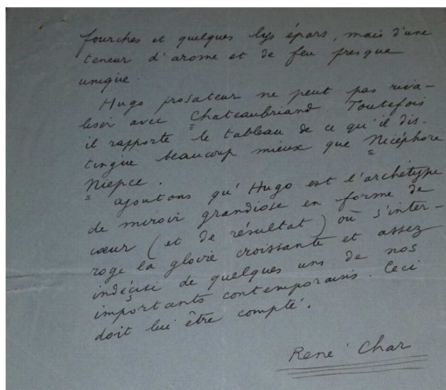 fourches et quelques lys épars, mais d'une
teneur d'arome et de feu presque
unique.
Hugo prosateur ne peut pas riva-
liser avec Chateaubriand Toutefois
il rapporte le tableau de ce qu'il dis.
tingue beaucoup mieux que Nicéphore
Niepce.
ajoutons qu'Hugo est l'archétype
de miroir grandiose en forme de
cœur (et de résultat) où s'inter-
roge la gloire croissante et assez
indécise de quelques uns de nos
importants contemporains. Ceci
doit lui être compté.
René Char